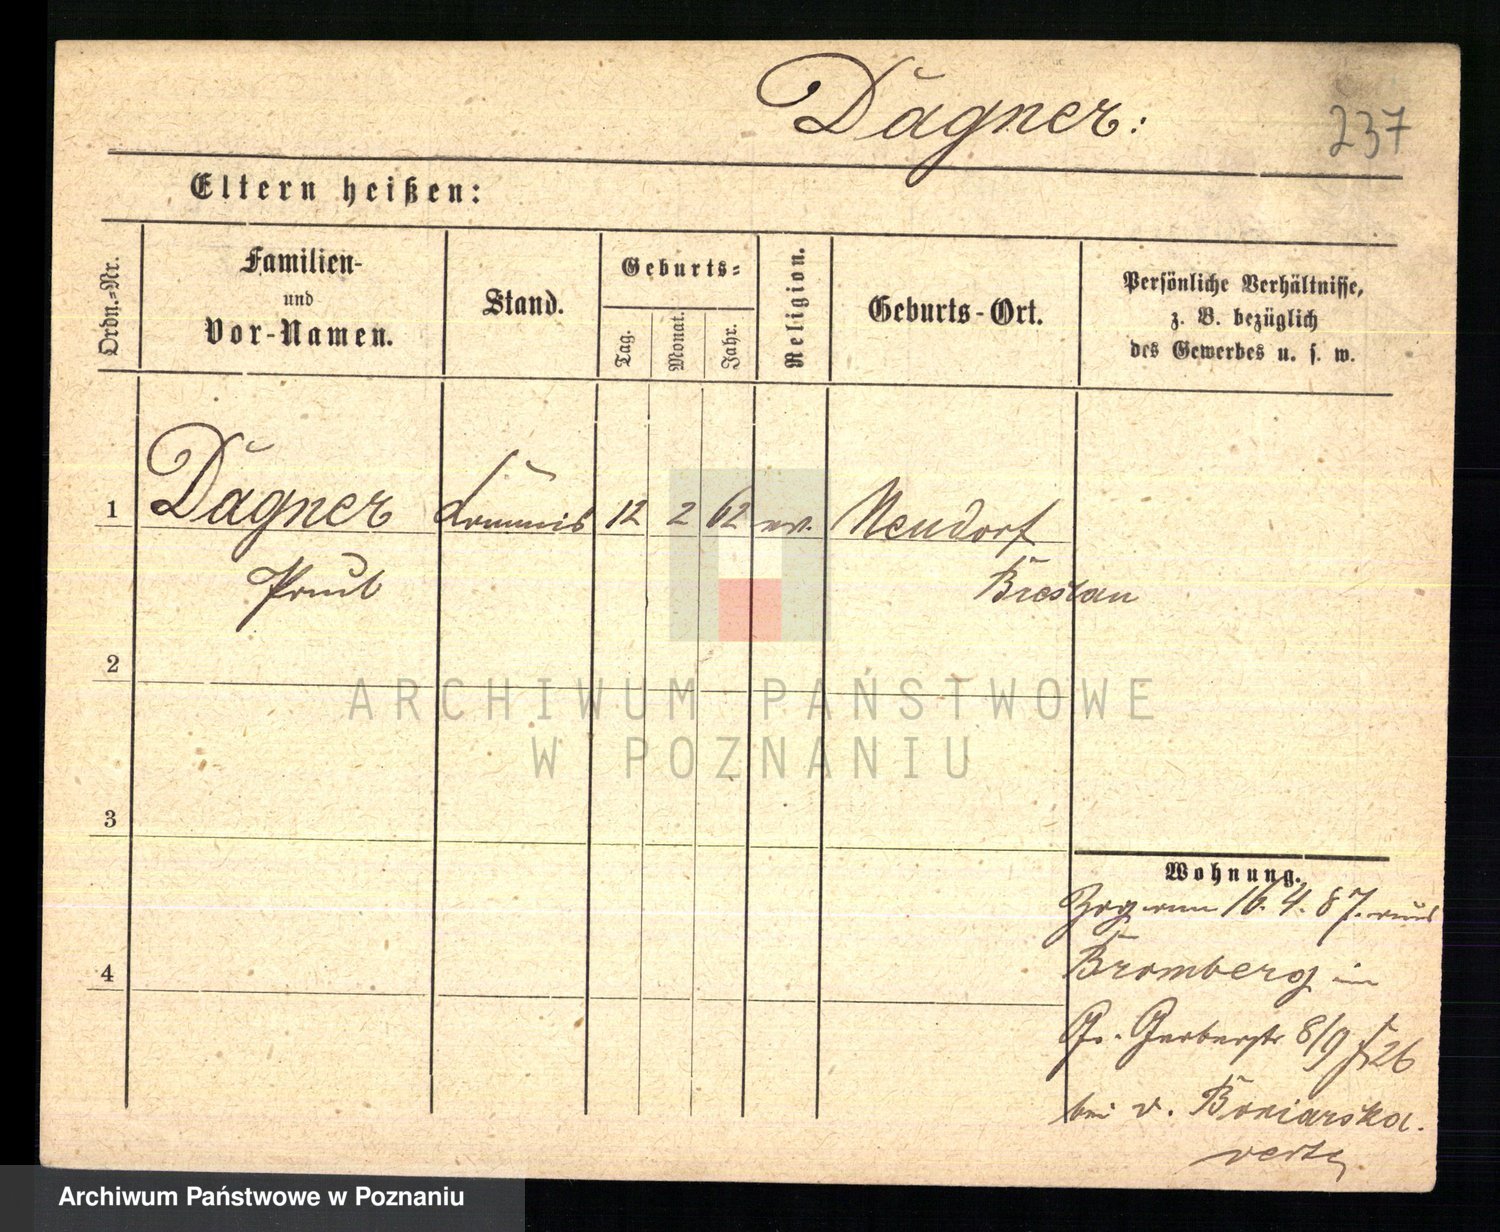 Dagner:
237
Eltern heißen:
Ordn.=Nr.
Familien-
und
Vor-Namen.
Stand.
Geburts=
Tag.
Monat.
Jahr.
Religion.
Geburts-Ort.
Persönliche Verhältnisse,
z. B. bezüglich
des Gewerbes u. s. w.
1 Dagner Commis 12 2 62 ev. Neudorf
Paul Breslau
2
3
4
Wohnung.
Zog am 16. 4. 87. aus
Bromberg in
Gr. Gerberstr 8/9
bei v.
verte
ARCHIWUM PAŃSTWOWE
W POZNANIU
Archiwum Państwowe w Poznaniu